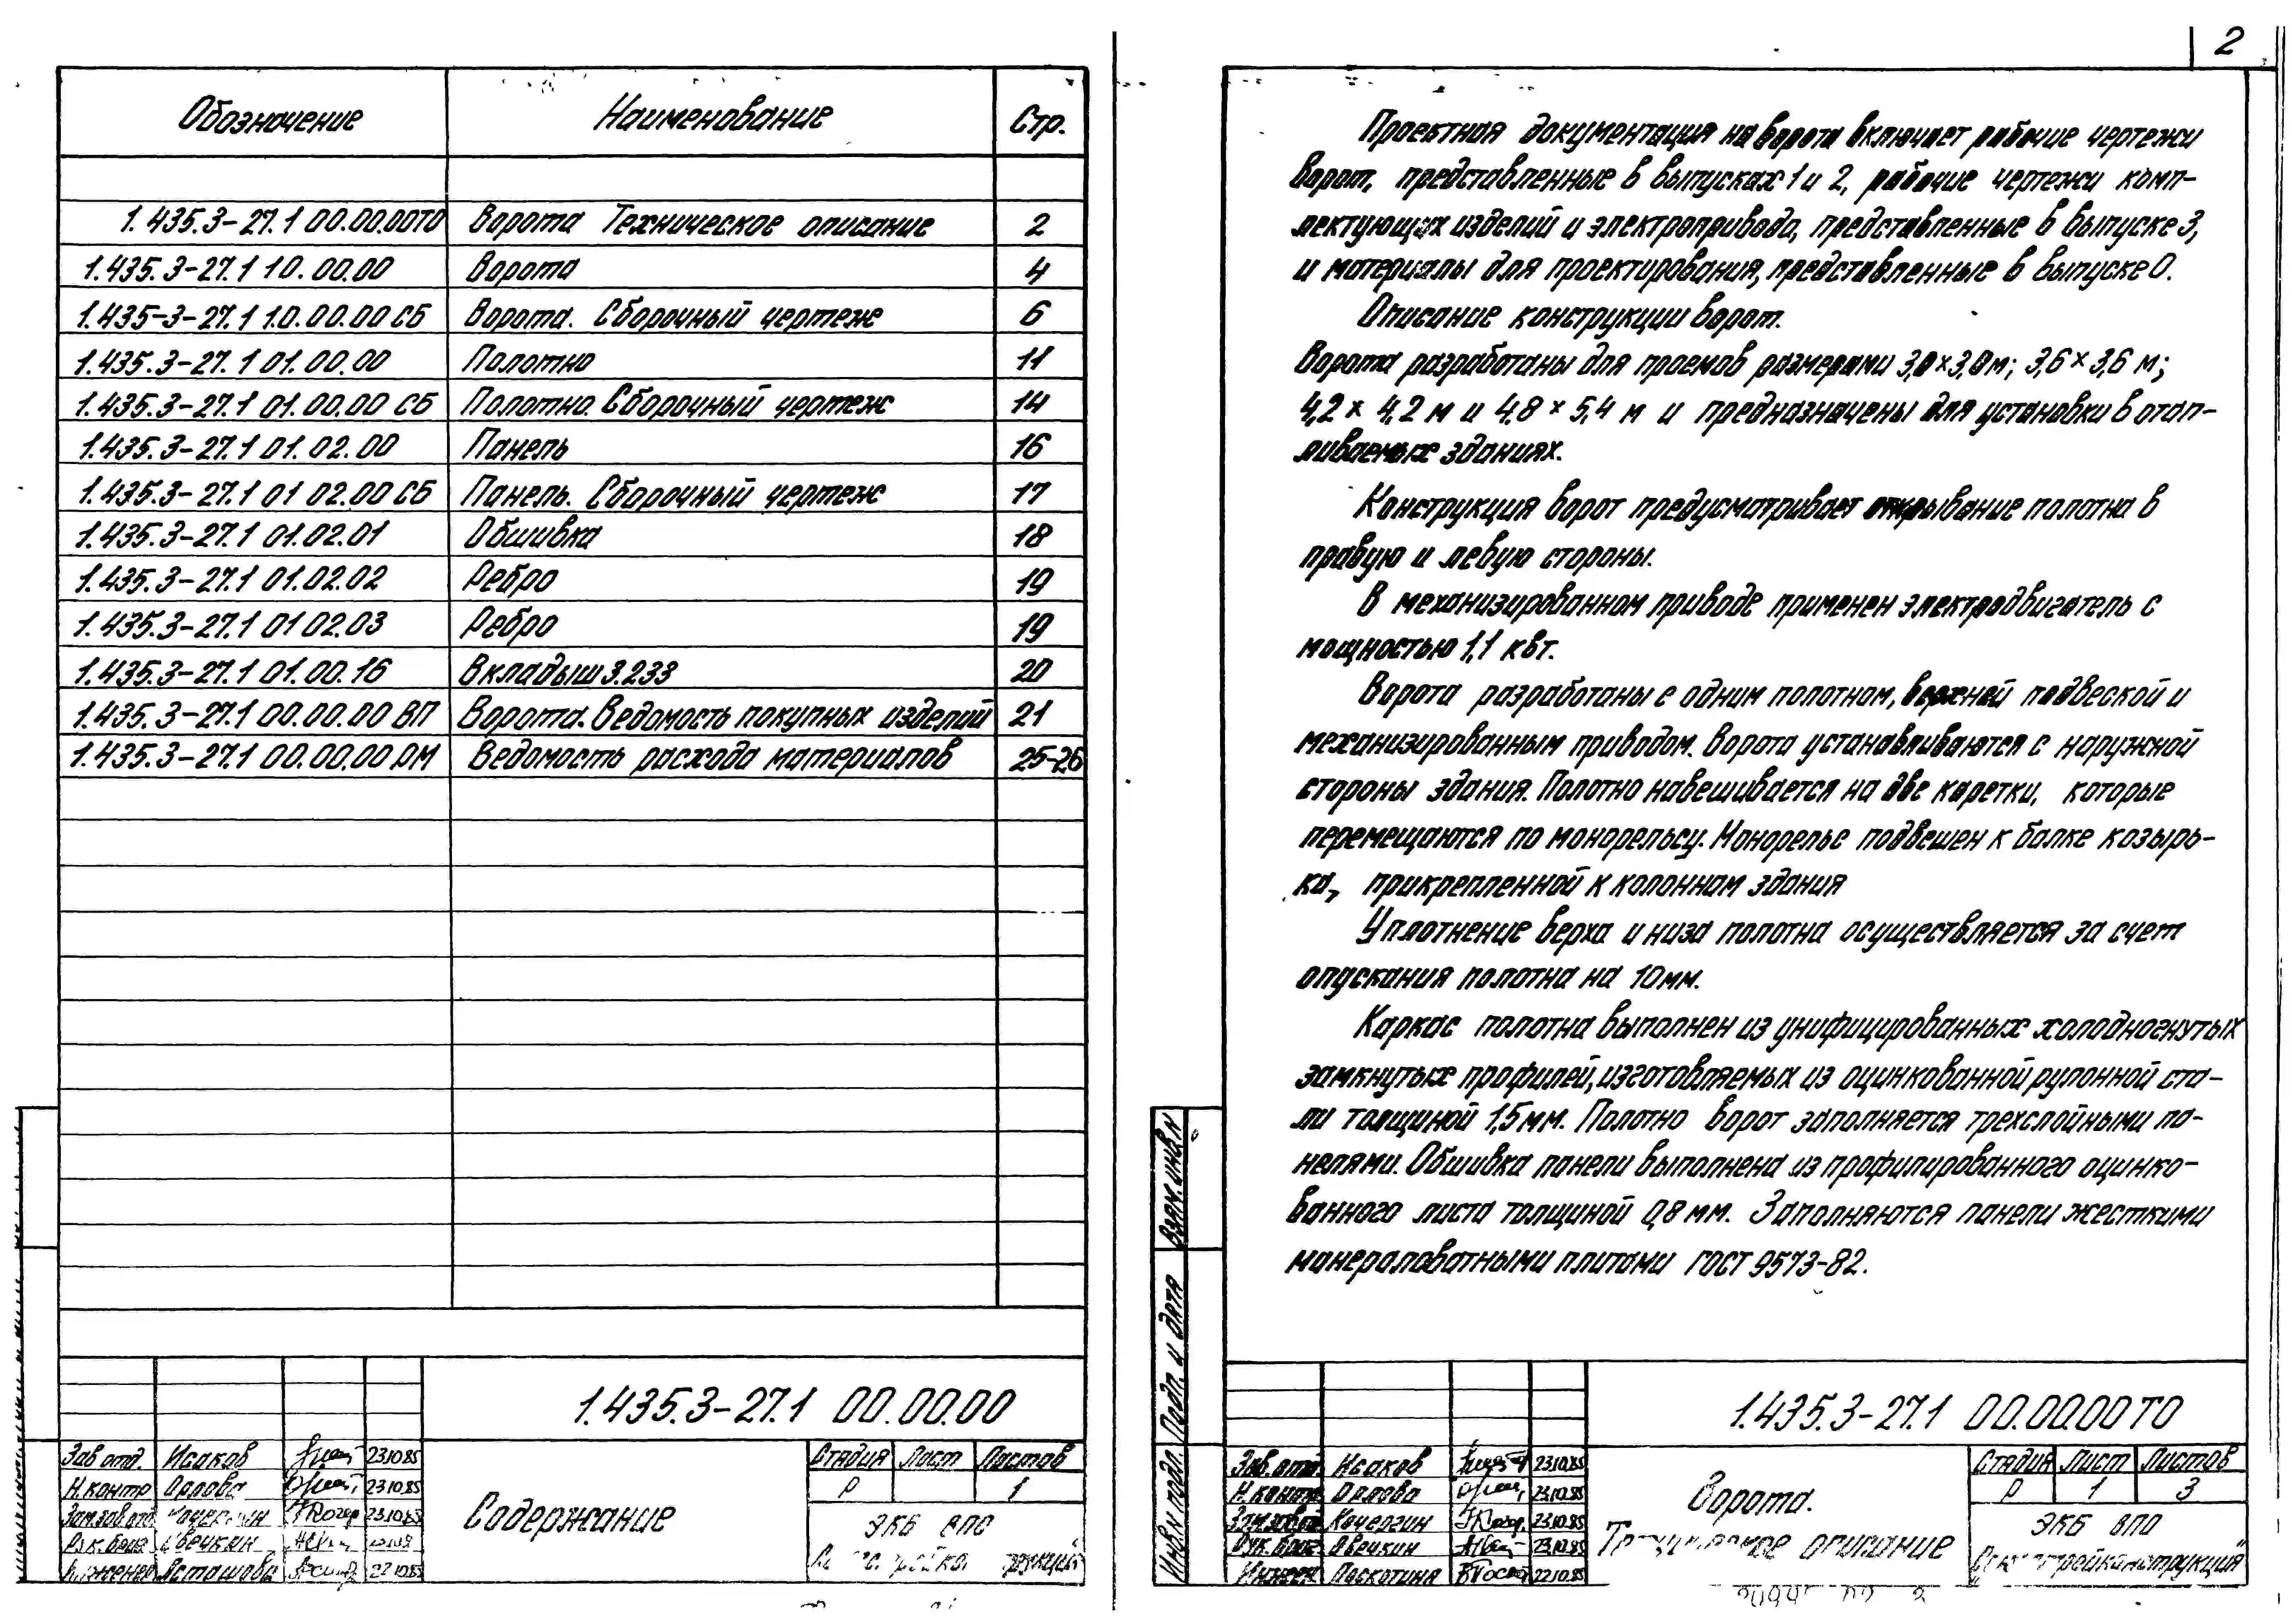 Обозначение Наименование Стр.
1.435.3-27.1 00.00.00ТО Ворота Техническое описание 2
1.435.3-27.1 10.00.00 Ворота 4
1.435-3-27.1 10.00.00 СБ Ворота. Сборочный чертеж 6
1.435.3-27.1 01.00.00 Полотно 11
1.435.3-27.1 01.00.00 СБ Полотно. Сборочный чертеж 14
1.435.3-27.1 01.02.00 Панель 16
1.435.3-27.1 01 02.00 СБ Панель. Сборочный чертеж 17
1.435.3-27.1 01.02.01 Обшивка 18
1.435.3-27.1 01.02.02 Ребро 19
1.435.3-27.1 01 02.03 Ребро 19
1.435.3-27.1 01.00.16 Вкладыш 3.233 20
1.435.3-27.1 00.00.00 ВП Ворота. Ведомость покупных изделий 21
1.435.3-27.1 00.00.00 РМ Ведомость расхода материалов 25-26
1.435.3-27.1 00.00.00
Зав отд. Исаков 23.10.85
Н.контр Орлова 23.10.85
Зам.зав отд. 23.10.85
Рук.бриг.
Инженер Асташова 22.10.85
Содержание
Стадия Лист Листов
Р 1
ЭКБ ВПО
2
Проектная документация на ворота включает рабочие чертежи
ворот, представленные в выпусках 1 и 2, рабочие чертежи комп-
лектующих изделий и электропривода, представленные в выпуске 3,
и материалы для проектирования, представленные в выпуске 0.
Описание конструкции ворот.
Ворота разработаны для проемов размерами 3,0 × 3,0 м; 3,6 × 3,6 м;
4,2 × 4,2 м и 4,8 × 5,4 м и предназначены для установки в отап-
ливаемых зданиях.
Конструкция ворот предусматривает открывание полотна в
правую и левую стороны.
В механизированном приводе применен электродвигатель с
мощностью 1,1 квт.
Ворота разработаны с одним полотном, верхней подвеской и
механизированным приводом. Ворота устанавливаются с наружной
стороны здания. Полотно навешивается на две каретки, которые
перемещаются по монорельсу. Монорельс подвешен к балке козырь-
ка, прикрепленной к колоннам здания
Уплотнение верха и низа полотна осуществляется за счет
опускания полотна на 10 мм.
Каркас полотна выполнен из унифицированных холодногнутых
замкнутых профилей, изготовляемых из оцинкованной рулонной ста-
ли толщиной 1,5 мм. Полотно ворот заполняется трехслойными па-
нелями. Обшивка панели выполнена из профилированного оцинко-
ванного листа толщиной 0,8 мм. Заполняются панели жесткими
минераловатными плитами ГОСТ 9573-82.
Взам. инв N
Подп. и дата
Инв N подл.
1.435.3-27.1 00.00.00 ТО
Зав. отд. Исаков 23.10.85
Н.контр. Орлова 23.10.85
Зам.зав.о Кочергин 23.10.85
Рук. бриг. Овечкин 23.10.85
Инжен. Поскотина 22.10.85
Ворота.
Техническое описание
Стадия Лист Листов
Р 1 3
ЭКБ ВПО